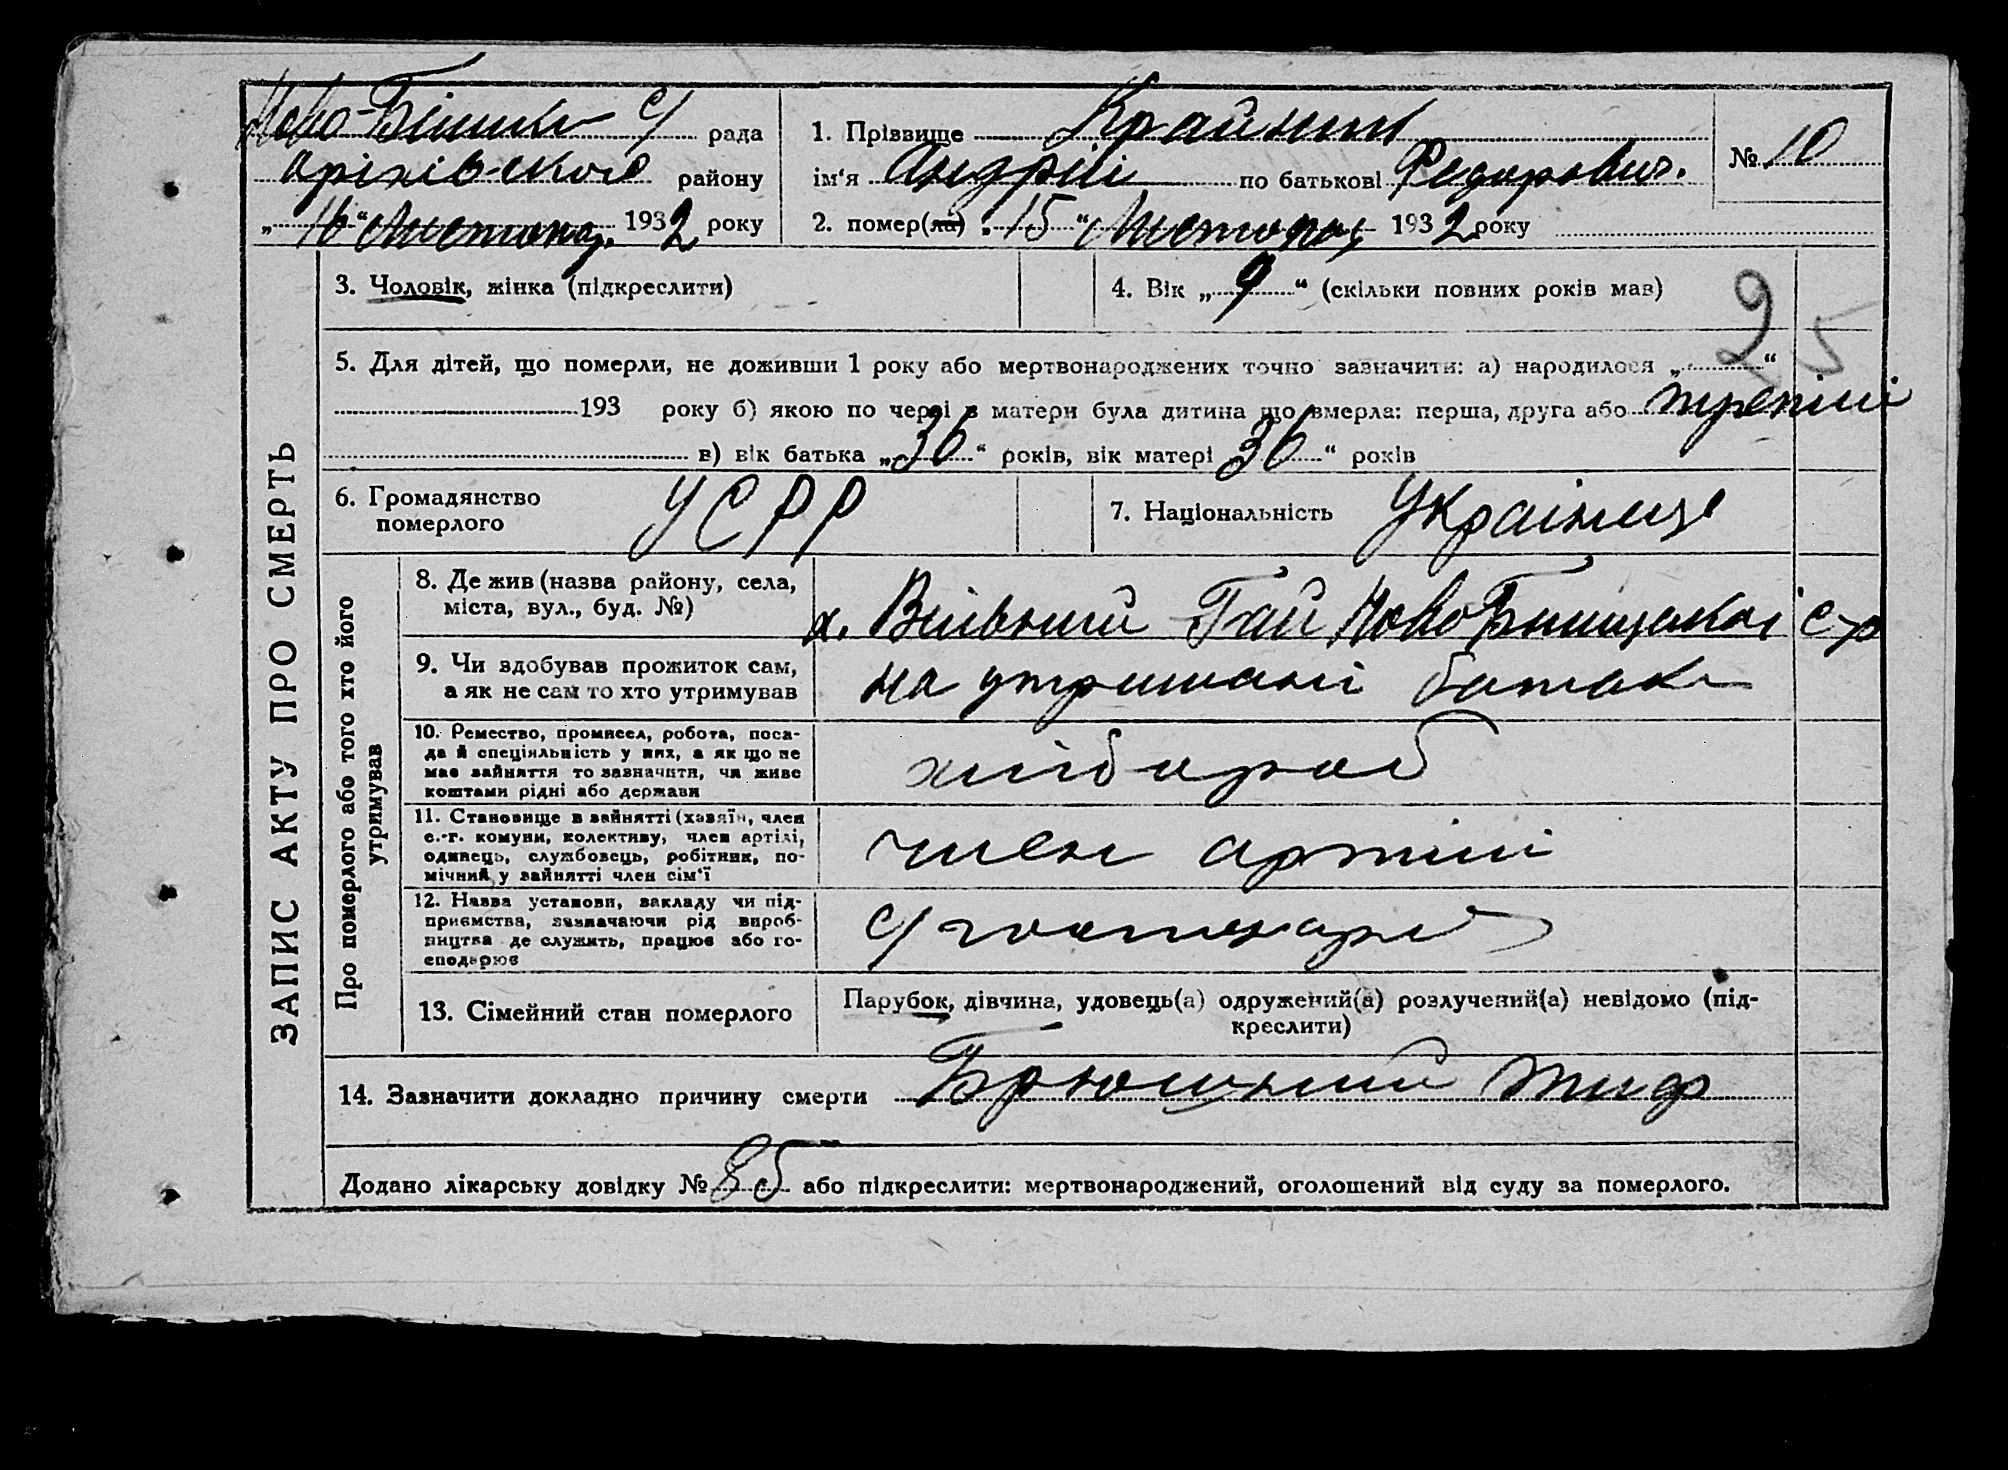 Ново-Бішки с/ рада
оріхівского району
„16“ Листопад. 1932 року
1. Прізвище Крайний
ім'я Андрій по батькові Федорович.
2. помер(ла) „15“ Листопад 1932 року
№ 10
ЗАПИС АКТУ ПРО СМЕРТЬ
3. Чоловік, жінка (підкреслити)
4. Вік „9“ (скільки повних років мав)
25
5. Для дітей, що померли, не доживши 1 року або мертвонароджених точно зазначити: а) народилося „ “
193 року б) якою по черзі в матери була дитина що вмерла: перша, друга або третій
в) вік батька „36“ років, вік матері 36“ років
6. Громадянство померлого УСРР
7. Національність Українец
Про померлого або того хто його утримував
8. Де жив (назва району, села,
міста, вул., буд. №)
х. Вільний Гай с-р
9. Чи здобував прожиток сам,
а як не сам то хто утримував
на утримані батька
10. Ремество, промисел, робота, поса-
да й спеціяльність у них, а як що не
має зайняття то зазначити, чи живе
коштами рідні або держави
хлібороб
11. Становище в зайнятті (хазяїн, член
с.-г. комуни, колективу, член артілі,
одинець, службовець, робітник, по-
мічний у зайнятті член сім'ї
член артіли
12. Назва установи, закладу чи під-
приємства, зазначаючи рід вироб-
ництва де служить, працює або го-
сподарює
с/господар
13. Сімейний стан померлого
Парубок, дівчина, удовець(а) одружений(а) розлучений(а) невідомо (під-
креслити)
14. Зазначити докладно причину смерти Брюшний тиф
Додано лікарську довідку № 85 або підкреслити: мертвонароджений, оголошений від суду за померлого.